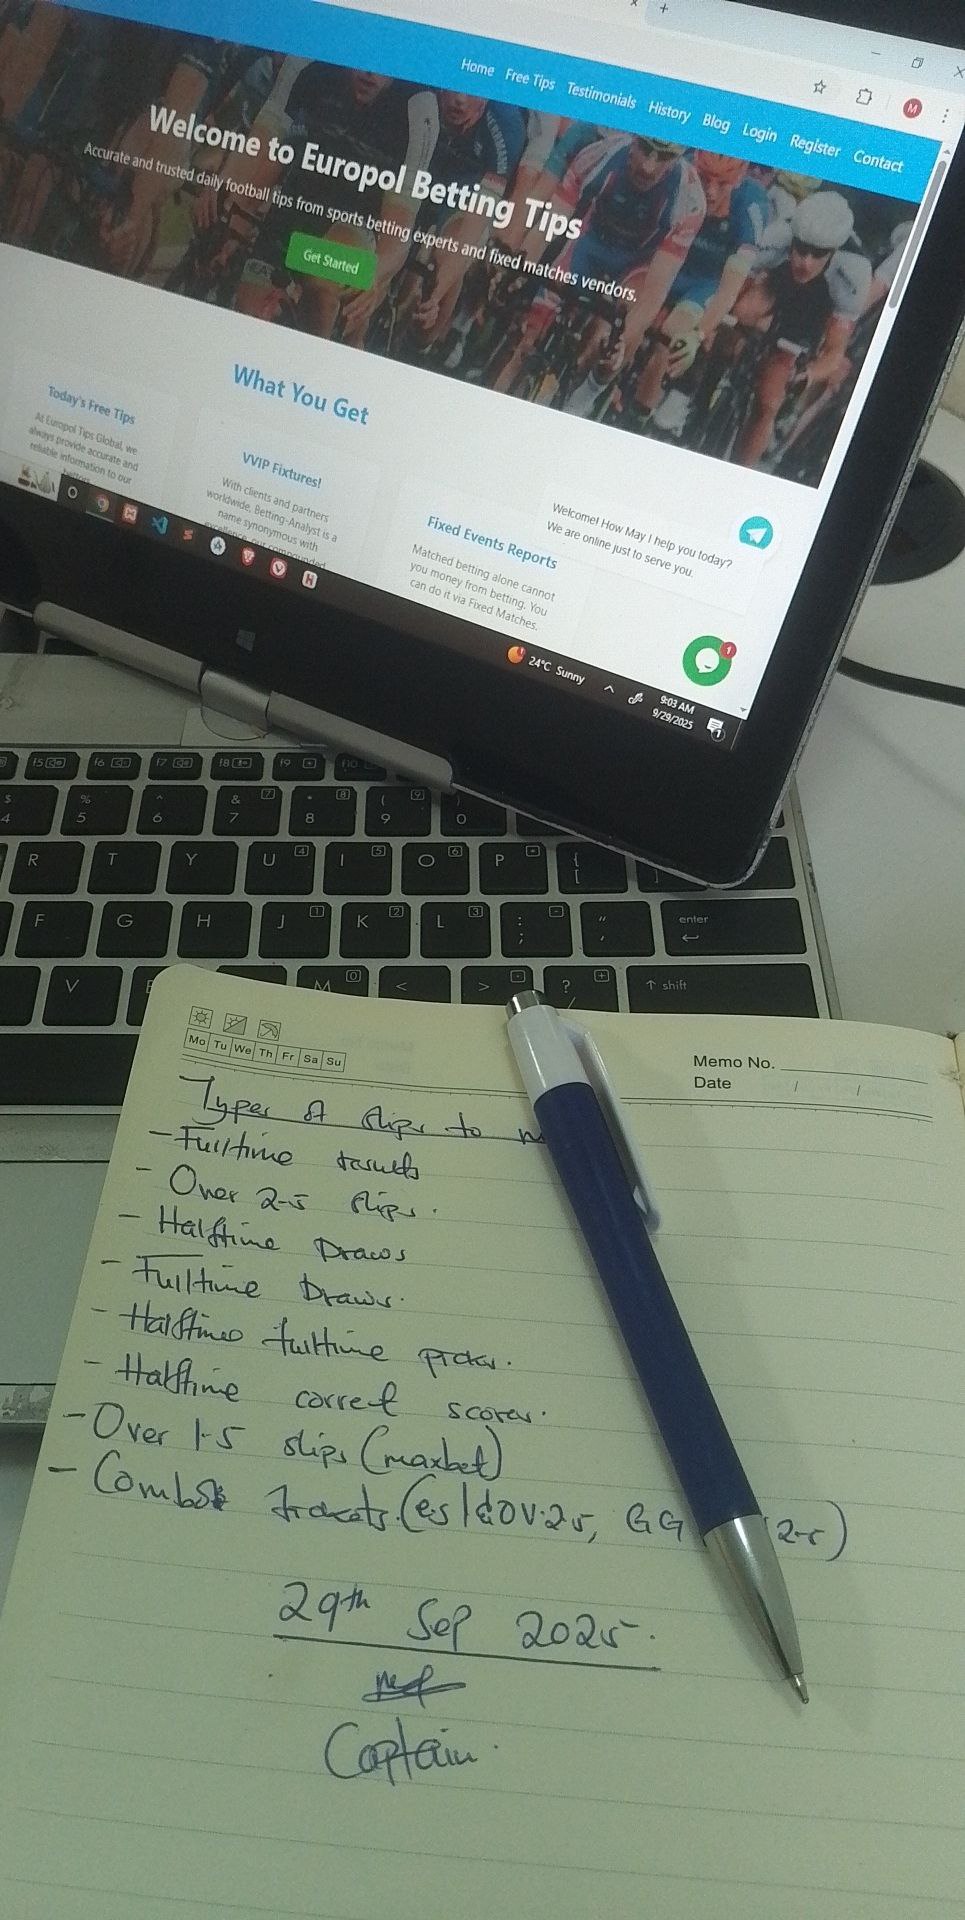 Home Free Tips Testimonials History Blog Login Register Contact
Welcome to Europol Betting Tips
Accurate and trusted daily football tips from sports betting experts and fixed matches vendors.
Get Started
What You Get
Today's Free Tips
At Europol Tips Global, we
always provide accurate and
reliable information to our
VVIP Fixtures!
With clients and partners
worldwide, Betting-Analyst is a
name synonymous with
Fixed Events Reports
Matched betting alone cannot
you money from betting. You
can do it via Fixed Matches.
Welcome! How May I help you today?
We are online just to serve you.
24°C Sunny
9:03 AM
9/29/2025
f5 f6 f7 f8 f9 f10
$ % ^ & 7 * 8 ( 9 )
4 5 6 7 8 9 0
R T Y U 4 I 5 O 6 P * { [ ]
F G H J 1 K 2 L 3 : ; - " ' enter
V M 0 < > . ? / + shift
Mo Tu We Th Fr Sa Su
Memo No.
Date / /
Types of slips to
- Fulltime results
- Over 2-5 slips.
- Halftime Draws
- Fulltime Draws.
- Halftime fulltime picks.
- Halftime correct scores.
- Over 1-5 slips (maxbet)
- Combos tickets. GG 2-5)
29th Sep 2025.
Captain.